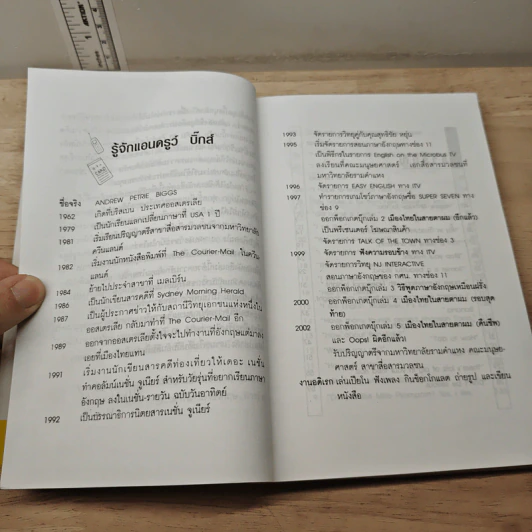 รู้จักแอนดรูว์ บิ๊กส์
ชื่อจริง ANDREW PETRIE BIGGS
1962 เกิดที่บริสเบน ประเทศออสเตรเลีย
1979 เป็นนักเรียนแลกเปลี่ยนภาษาที่ USA 1 ปี
1981 เริ่มเรียนปริญญาตรีสาขาสื่อสารมวลชนจากมหาวิทยาลัย
ควีนแลนด์
1982 เริ่มงานนักหนังสือพิมพ์ที่ The Courier-Mail ในควีน
แลนด์
1984 ย้ายไปประจำสาขาที่ เมลเบิร์น
1986 เป็นนักเขียนสารคดีที่ Sydney Morning Herald
1987 เป็นผู้ประกาศข่าวให้กับสถานีวิทยุเอกชนแห่งหนึ่งใน
ออสเตรเลีย กลับมาทำที่ The Courier-Mail อีก
1989 ออกจากออสเตรเลียตั้งใจจะไปทำงานที่อังกฤษแต่มาลง
เอยที่เมืองไทยแทน
1991 เริ่มงานนักเขียนสารคดีท่องเที่ยวให้เดอะ เนชั่น
ทำคอลัมน์เนชั่น จูเนียร์ สำหรับวัยรุ่นที่อยากเรียนภาษา
อังกฤษ ลงในเนชั่น-รายวัน ฉบับวันอาทิตย์
1992 เป็นบรรณาธิการนิตยสารเนชั่น จูเนียร์
1993 จัดรายการวิทยุคู่กับคุณสุทธิชัย หยุ่น
1995 เริ่มจัดรายการสอนภาษาอังกฤษทางช่อง 11
เป็นพิธีกรในรายการ English on the Microbus TV
ลงเรียนที่คณะมนุษยศาสตร์ เอกสื่อสารมวลชนที่
มหาวิทยาลัยรามคำแหง
1996 จัดรายการ EASY ENGLISH ทาง ITV
1997 ทำรายการเกมโชว์ภาษาอังกฤษชื่อ SUPER SEVEN ทาง
ช่อง 9
ออกพ็อกเก็ตบุ๊กเล่ม 2 เมืองไทยในสายตาผม (ซีกแล้ว)
เป็นพรีเซนเตอร์ โฆษณาสินค้า
จัดรายการ TALK OF THE TOWN ทางช่อง 3
1999 จัดรายการ ฟังความรอบข้าง ทาง ITV
จัดรายการวิทยุ NJ INTERACTIVE
สอนภาษาอังกฤษของ กศน. ทางช่อง 11
ออกพ็อกเก็ตบุ๊กเล่ม 3 วิธีพูดภาษาอังกฤษเหมือนฝรั่ง
2000 ออกพ็อกเก็ตบุ๊กเล่ม 4 เมืองไทยในสายตาผม (รอบสุด
ท้าย)
2002 ออกพ็อกเก็ตบุ๊กเล่ม 5 เมืองไทยในสายตาผม (คืนชีพ)
และ Oops! ผิดอีกแล้ว!
รับปริญญาตรีจากมหาวิทยาลัยรามคำแหง คณะมนุษย-
ศาสตร์ สาขาสื่อสารมวลชน
งานอดิเรก เล่นเปียโน ฟังเพลง กินช็อกโกแลต ถ่ายรูป และเขียน
หนังสือ